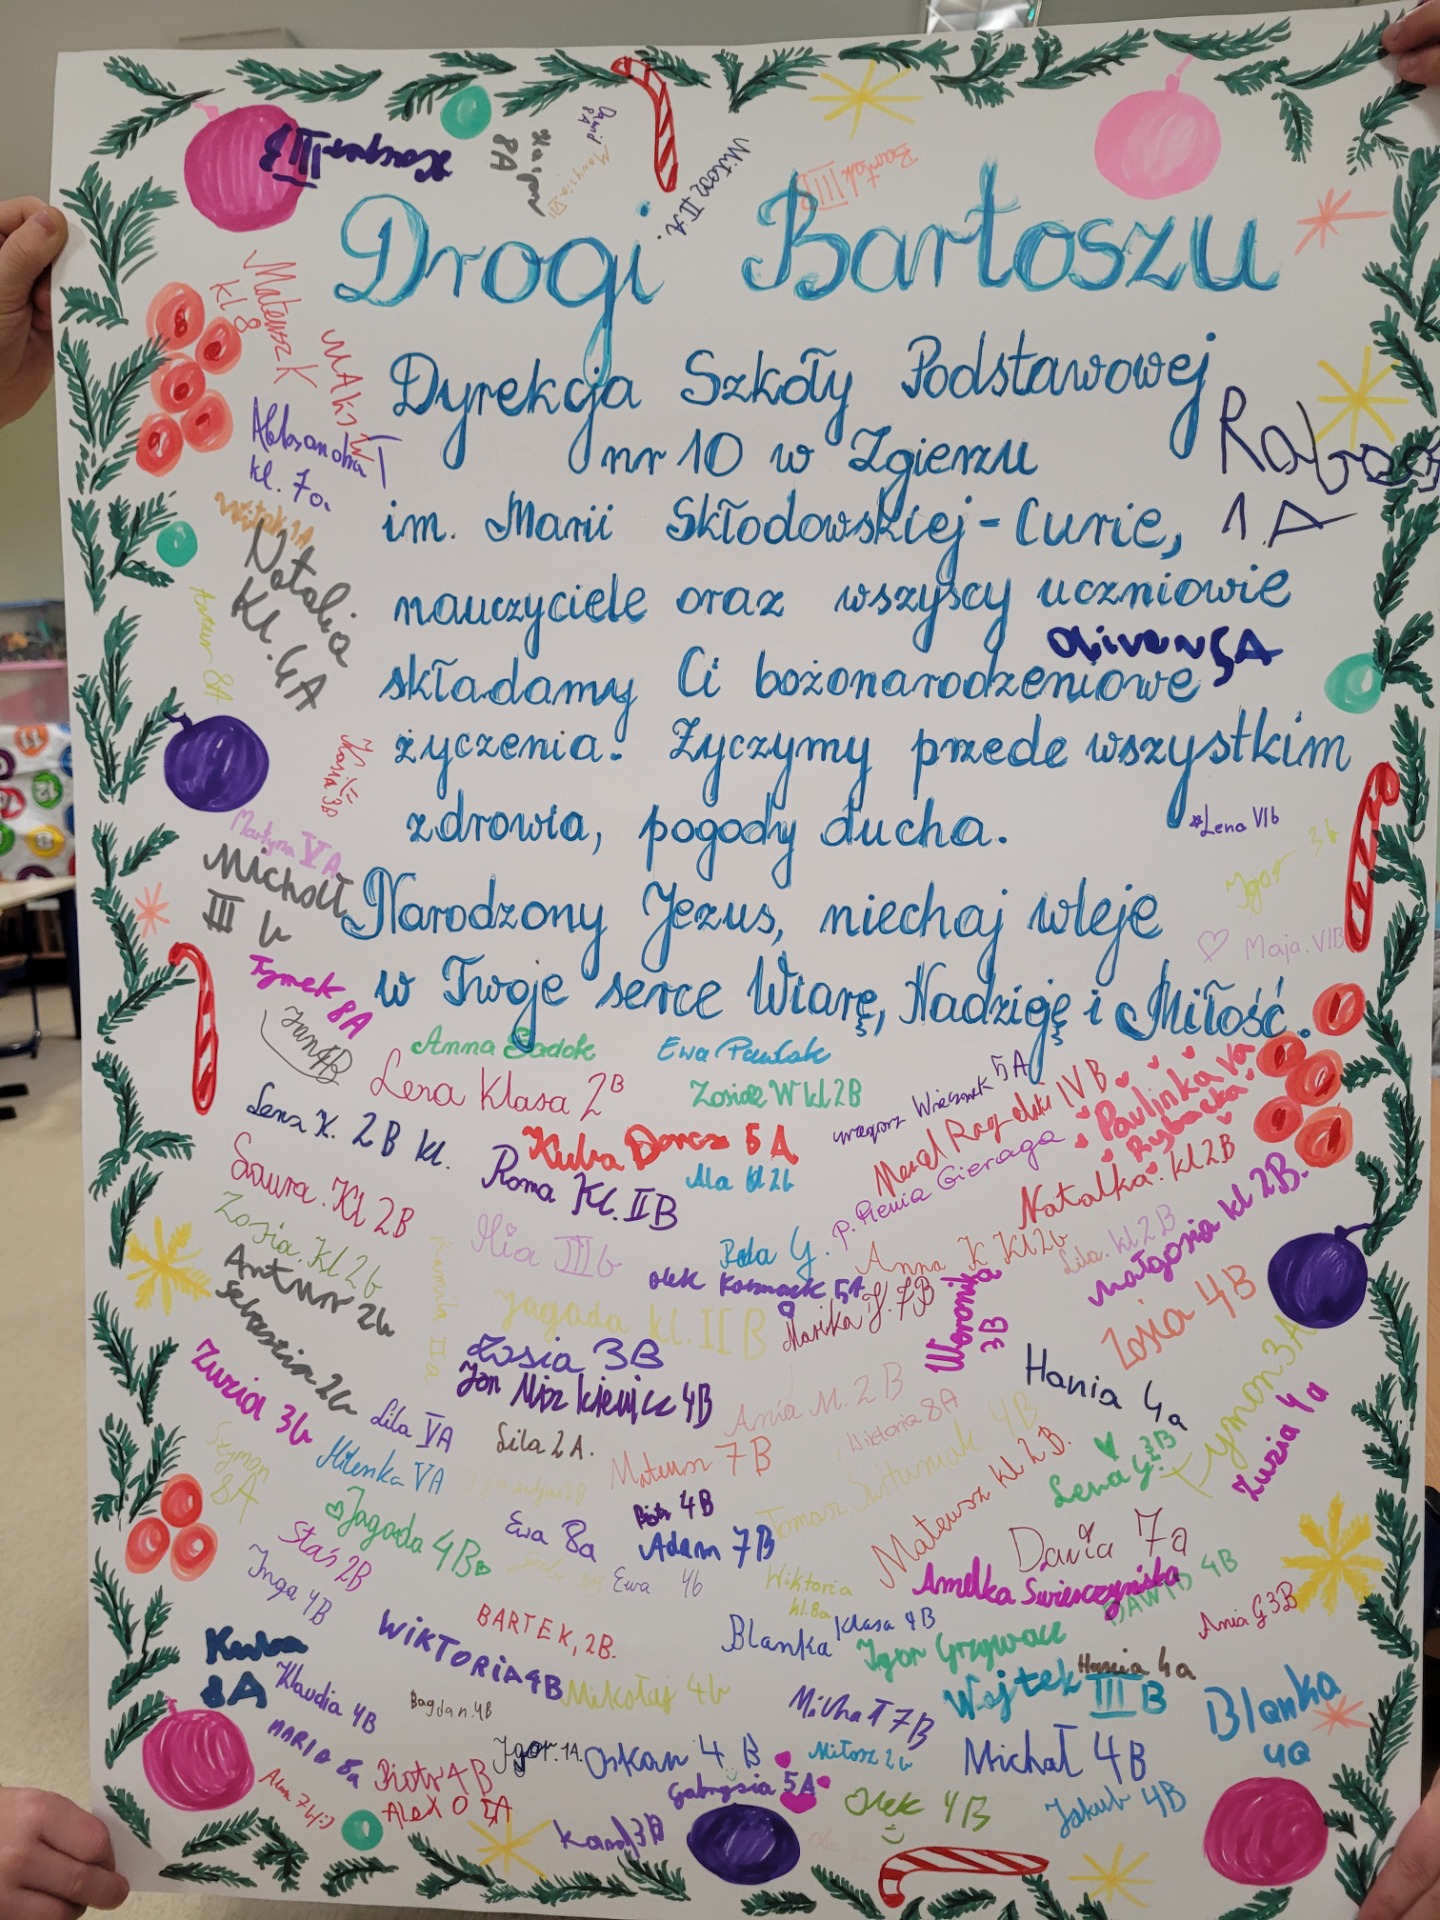 Kacper III B
Kacper
8A
Dawid
Miłosz II A.
Bartek III B
Drogi Bartoszu
Mateusz K
kl 8
Dyrekcja Szkoły Podstawowej
nr 10 w Zgierzu
Aleksandra T
kl. 7a
Witek 1A
im. Marii Skłodowskiej-Curie,
1.A
Natalia
Kl. 4A
nauczyciele oraz wszyscy uczniowie
Oliver 5A
Artur 8A
składamy Ci bożonarodzeniowe
życzenia. Życzymy przede wszystkim
Kasia 3B
zdrowia, pogody ducha.
Lena VIb
Martyna VA
Igor 3b
Michał
III b
Narodzony Jezus, niechaj wleje
Maja. VIB
Tymek 8A
w Twoje serce Wiarę, Nadzieję i Miłość.
Jan 4B
Anna Sadok Ewa Pawlak
Lena Klasa 2B Zosia W kl 2B
Grzegorz Wieczorek 5A
Lena K. 2B kl.
Kuba Darcz 5A
Paulinka Va
Rybacka
Roma Kl. II B
Ala kl 2b
P. Pienia Gieraga
Natalka. kl 2B
Laura. Kl 2B
Zosia. Kl 2b
Mia III b
Pola G.
Anna K Kl 2b
Lila. kl 2B
Małgosia kl 2B.
Artur 2b
Kamila II a
Olek Kosmack 5A
Marika J. 7B
Weronika
3B
Zosia 4B
Sebastian 2b
Jagoda kl. II B
Zosia 3B
Jan Mizkiewicz 4B
Hania 4a
Tymon 3A
Zuzia 3b
Lila VA
Lila 2A.
Ania M. 2B
Wiktoria 8A
Zuzia 4a
Szymon
8A
Milenka VA
Mateusz 7B
Mateusz kl 2B.
Lena G. 3B
Jagoda 4B
Ewa 8a
Piotr 4B
Adam 7B
Daria 7a
Staś 2B
Inga 4B
Ewa 4b
Wiktoria
kl. 8a
Amelka Świeszczyńska
DAWID 4B
BARTEK, 2B.
Blanka Klasa 4B
Ania G 3B
Kuba
8A
WIKTORIA 4B
Igor Grzywacz
Klaudia 4B
Bagdan. 4B
Mikołaj 4b
Michał 7B
Wojtek III B
Hania 4a
Blanka
4a
MARIA 8a
Piotr 4B
Igor. 1A.
Oskar 4B
Miłosz 2b
Michał 4B
Gabrysia 5A
Olek 4B
Jakub 4B
Karol 3B